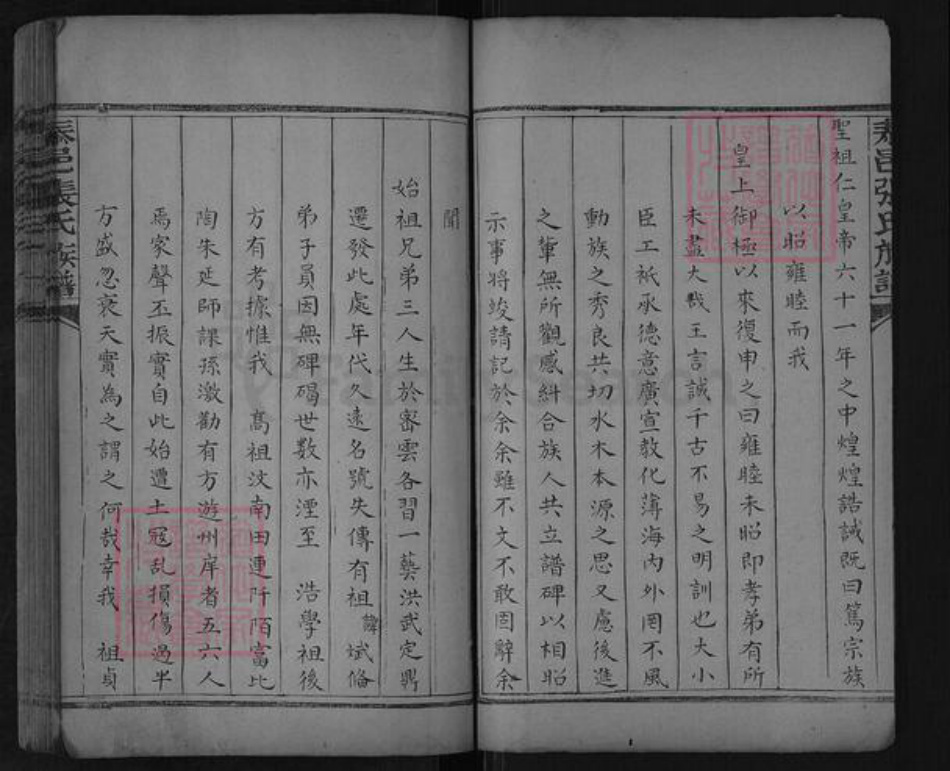 聖祖仁皇帝六十一年之中煌煌誥誡既曰篤宗族
以昭雍睦而我
皇上御極以來復申之曰雍睦未昭即孝弟有所
未盡大哉王言誠千古不易之明訓也大小
臣工祇承德意廣宣教化薄海內外罔不風
動族之秀良共切水木本源之思又慮後進
之輩無所觀感糾合族人共立譜碑以相昭
示事將竣請記於余余雖不文不敢固辭余
聞
始祖兄弟三人生於密雲各習一藝洪武定鼎
遷發此處年代久遠名號失傳有祖諱斌俻
弟子員因無碑碣世数亦湮至 浩學祖後
方有考據惟我 高祖汶南田連阡陌富比
陶朱延師課孫激勸有方遊州庠者五六人
焉家聲丕振實自此始遭土冦乱損傷過半
方盛忽衰天實為之謂之何哉幸我 祖貞
泰邑張氏族譜